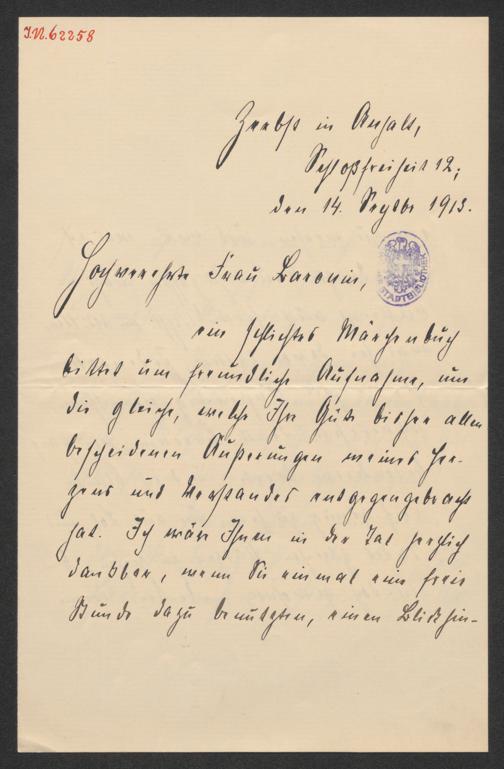 I.N. 62258
Zerbst in Anhalt,
Schloßfreiheit 12;
den 14. Septbr 1913.
Hochverehrte Frau Baronin,
STADTBIBLIOTHEK
ein schlichtes Märchenbuch
bittet um freundliche Aufnahme, um
die gleiche, welche Ihre Güte bisher allen
bescheidenen Äußerungen meines Her-
zens und Verstandes entgegengebracht
hat. Ich wäre Ihnen in der Tat herzlich
dankbar, wenn Sie einmal eine freie
Stunde dazu benutzten, einen Blick hin-